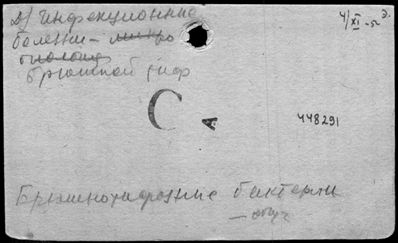 д/ Инфекционные
болезни – микро
биология
брюшной тиф
4/XI-52
С
А
448291
Брюшнотифозные бактерии